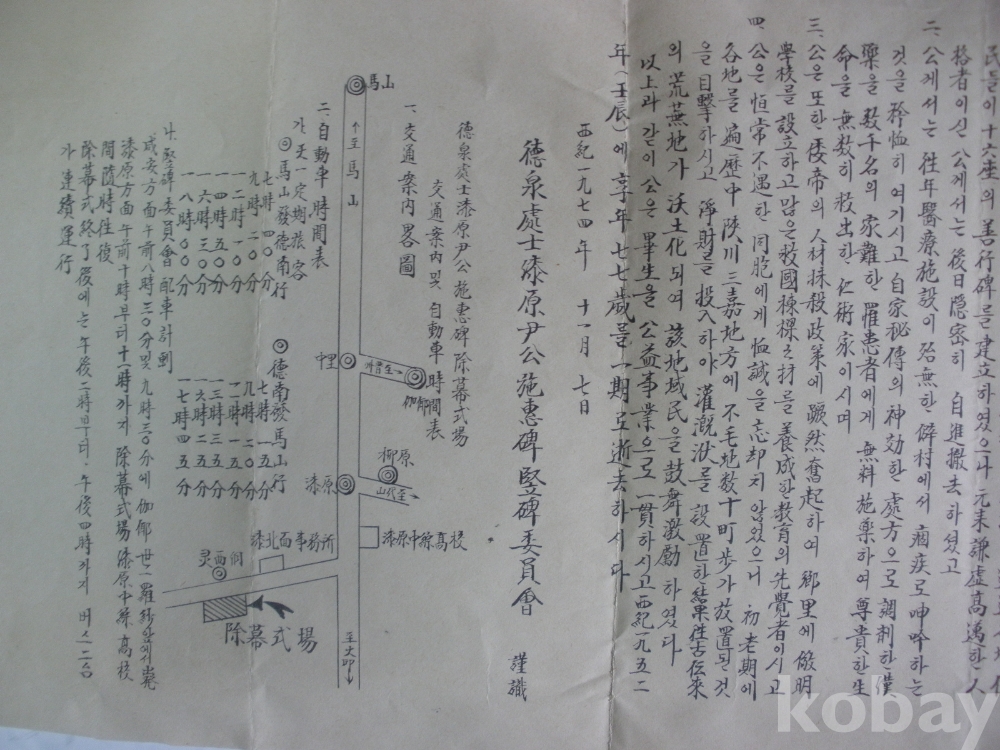 民들이 十六座의 善行碑를 建立하였으나 元来謙虛高邁한 人
格者이신 公께서는 後日隠密히 自進搬去하셨고
二. 公께서는 往年醫療施設이 殆無한 僻村에서 痼疾로 呻吟하는
것을 矜恤히 여기시고 自家秘傳의 神効한 處方으로 調剤한 漢
藥을 数千名의 家難한 罹患者에게 無料施薬하여 尊貴한 生
命을 無数히 救出한 仁術家이시며
三. 公은 또한 倭帝의 人材抹殺政策에 蹶然奮起하여 鄕里에 儆明
學校를 設立하고 많은 救國棟樑之材를 養成한 教育의 先覺者이시고
四. 公은 恒常不遇한 同胞에게 恤誠을 忘却치 않었으니 初老期에
各地를 遍歴中 陜川三嘉地方에 不毛地数十町歩가 放置된 것
을 目擊하시고 淨財를 投入하야 灌漑洑를 設置한 結果 往古伝來
의 荒蕪地가 沃土化되여 該地域民을 鼓舞激勵하였다
以上과 같이 公은 畢生을 公益事業으로 一貫하시고 西紀一九五二
年(壬辰)에 享年七七歲를 一期로 逝去하시다
西紀一九七四年 十一月 七日
德泉處士漆原尹公施惠碑竪碑委員會 謹識
德泉處士漆原尹公施惠碑除幕式場
交通案内및 自動車時間表
一. 交通案内畧圖
馬山
↑至馬山
中里
至晋州
伽倻
柳原
至代山
漆原
漆原中綜高校
漆北面事務所
灵西洞
除幕式場
至大邱
二. 自動車時間表
가. 天一定期旅客
◎馬山發德南行
七時四0分
九時二0分
一二時一0分
一四時五0分
一六時三0分
一八時00分
◎德南發馬山行
七時一五分
九時二0分
一一時一0分
一三時三五分
一六時二五分
一七時四五分
나. 竪碑委員會配車計劃
咸安方面 午前八時三0分및 九時三0分에 伽倻 世一羅紗앞에서 出発
漆原方面 午前十時부터 十一時까지 除幕式場 漆原中綜高校
間随時往復
除幕式終了後에는 午後二時부터 午後四時까지 버스二台
가 連續運行
kobay